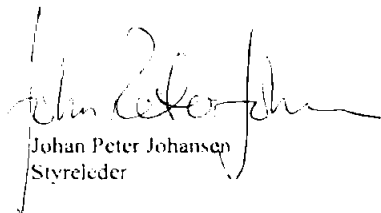 Johan Peter Johansen
Styreleder